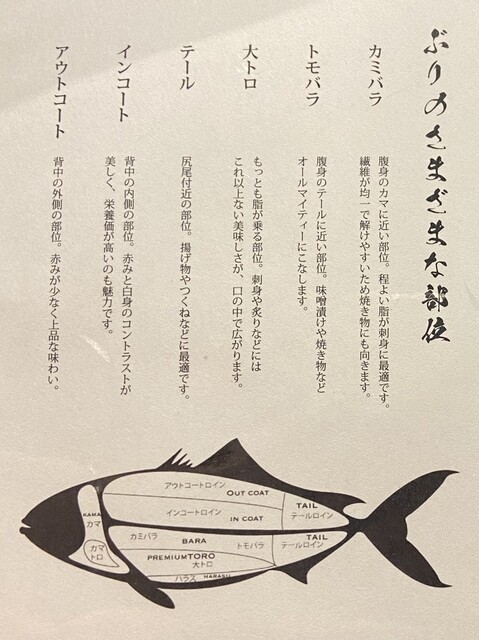 ぶりのさまざまな部位
カミバラ
腹身のカマに近い部位。程よい脂が刺身に最適です。
繊維が均一で解けやすいため焼き物にも向きます。
トモバラ
腹身のテールに近い部位。味噌漬けや焼き物など
オールマイティーにこなします。
大トロ
もっとも脂が乗る部位。刺身や炙りなどには
これ以上ない美味しさが、口の中で広がります。
テール
尻尾付近の部位。揚げ物やつくねなどに最適です。
インコート
背中の内側の部位。赤みと白身のコントラストが
美しく、栄養価が高いのも魅力です。
アウトコート
背中の外側の部位。赤みが少なく上品な味わい。
アウトコートロイン OUT COAT
TAIL
テールロイン
インコートロイン IN COAT
KAMA
カマ
カマ
トロ
カミバラ BARA トモバラ
TAIL
テールロイン
PREMIUMTORO
大トロ
ハラス HARASU